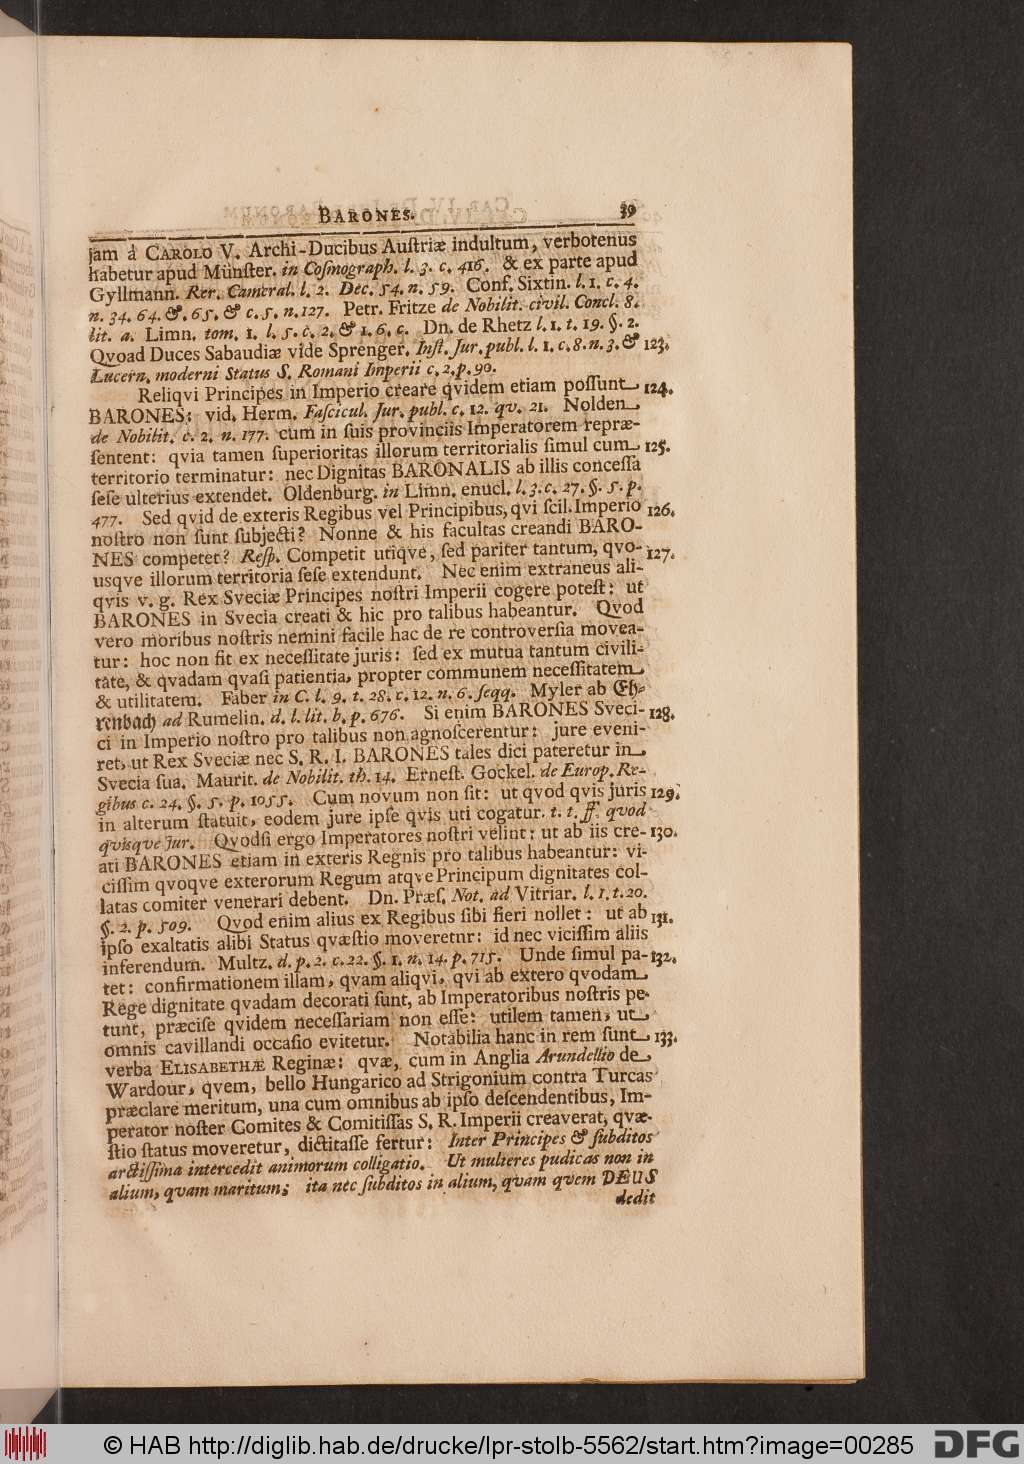 BARONES. 39
jam à CAROLO V. Archi-Ducibus Auſtriæ indultum, verbotenus
habetur apud Münſter. in Coſmograph. l. 3. c. 416. & ex parte apud
Gyllmann. Rer. Cameral. l. 2. Dec. 54. n. 59. Conf. Sixtin. l. 1. c. 4.
n. 34. 64. &. 65. & c. 5. n. 127. Petr. Fritze de Nobilit. civil. Concl. 8.
lit. a. Limn. tom. 1. l. 5. c. 2. & 1. 6. c. Dn. de Rhetz l. 1. t. 19. §. 2.
Qvoad Duces Sabaudiæ vide Sprenger. Inſt. Jur. publ. l. 1. c. 8. n. 3. & 123.
Lucern. moderni Status S. Romani Imperii c. 2. p. 90.
Reliqvi Principes in Imperio creare qvidem etiam poſſunt 124.
BARONES: vid. Herm. Faſcicul. Jur. publ. c. 12. qv. 21. Nolden
de Nobilit. c. 2. n. 177. cum in ſuis provinciis Imperatorem repræ-
ſentent: qvia tamen ſuperioritas illorum territorialis ſimul cum 125.
territorio terminatur: nec Dignitas BARONALIS ab illis conceſſa
ſeſe ulterius extendet. Oldenburg. in Limn. enucl. l. 3. c. 27. §. 5. p.
477. Sed qvid de exteris Regibus vel Principibus, qvi ſcil. Imperio 126.
noſtro non ſunt ſubjecti? Nonne & his facultas creandi BARO-
NES competet? Reſp. Competit utiqve, ſed pariter tantum, qvo- 127.
usqve illorum territoria ſeſe extendunt. Nec enim extraneus ali-
qvis v. g. Rex Sveciæ Principes noſtri Imperii cogere poteſt: ut
BARONES in Svecia creati & hic pro talibus habeantur. Qvod
vero moribus noſtris nemini facile hac de re controverſia movea-
tur: hoc non fit ex neceſſitate juris: ſed ex mutua tantum civili-
tate, & qvadam qvaſi patientia, propter communem neceſſitatem
& utilitatem. Faber in C. l. 9. t. 28. c. 12. n. 6. ſeqq. Myler ab Eh-
renbach ad Rumelin. d. l. lit. b. p. 676. Si enim BARONES Sveci- 128.
ci in Imperio noſtro pro talibus non agnoſcerentur: jure eveni-
ret, ut Rex Sveciæ nec S. R. I. BARONES tales dici pateretur in
Svecia ſua. Maurit. de Nobilit. th. 14. Erneſt. Gockel. de Europ. Re-
gibus c. 24. §. 5. p. 1055. Cum novum non ſit: ut qvod qvis juris 129.
in alterum ſtatuit, eodem jure ipſe qvis uti cogatur. t. t. ff. quod
qvisqve Jur. Qvodſi ergo Imperatores noſtri velint: ut ab iis cre- 130.
ati BARONES etiam in exteris Regnis pro talibus habeantur: vi-
ciſſim qvoqve exterorum Regum atqve Principum dignitates col-
latas comiter venerari debent. Dn. Præſ. Not. ad Vitriar. l. 1. t. 20.
§. 2. p. 509. Qvod enim alius ex Regibus ſibi fieri nollet: ut ab 131.
ipſo exaltatis alibi Status qvæſtio moveretur: id nec viciſſim aliis
inferendum. Multz. d. p. 2. c. 22. §. 1. n. 14. p. 715. Unde ſimul pa- 132.
tet: confirmationem illam, qvam aliqvi, qvi ab extero qvodam
Rege dignitate qvadam decorati ſunt, ab Imperatoribus noſtris pe-
tunt, præciſe qvidem neceſſariam non eſſe: utilem tamen, ut
omnis cavillandi occaſio evitetur. Notabilia hanc in rem ſunt 133.
verba ELISABETHÆ Reginæ: qvæ, cum in Anglia Arundellio de
Wardour, qvem, bello Hungarico ad Strigonium contra Turcas
præclare meritum, una cum omnibus ab ipſo deſcendentibus, Im-
perator noſter Comites & Comitiſſas S. R. Imperii creaverat, qvæ-
ſtio ſtatus moveretur, dictitaſſe fertur: Inter Principes & ſubditos
arctiſſima intercedit animorum colligatio. Ut mulieres pudicas non in
alium, qvam maritum; ita nec ſubditos in alium, qvam qvem DEUS
dedit
© HAB http://diglib.hab.de/drucke/lpr-stolb-5562/start.htm?image=00285 DFG